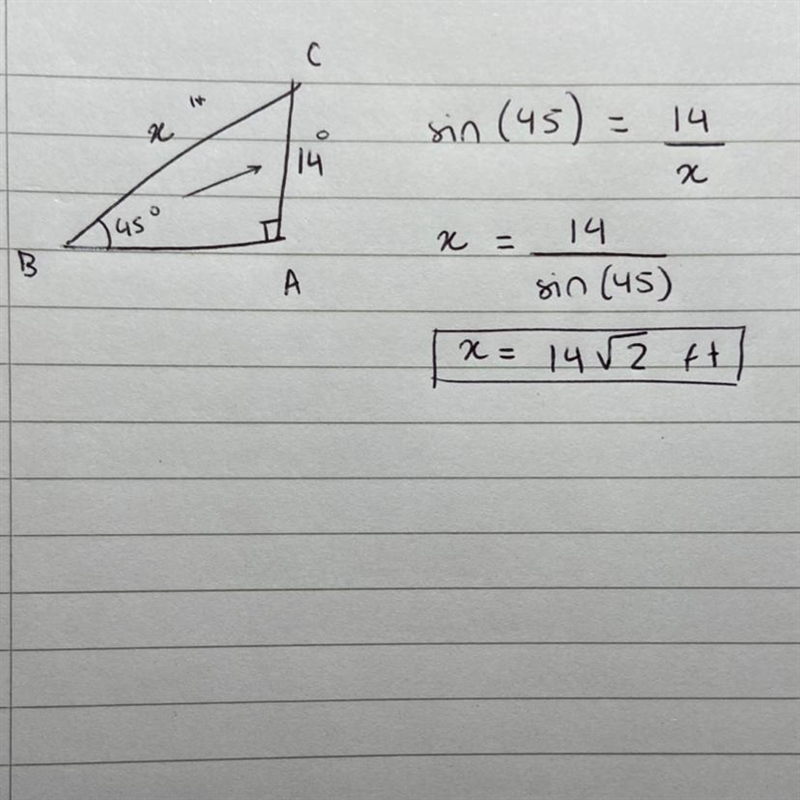 C
x H
14 o
45°
B
A
sin (45) = 14 / x
x = 14 / sin (45)
x = 14 √2 ft